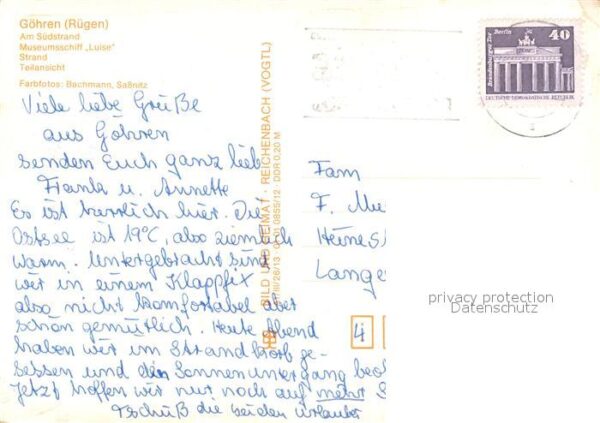 Göhren (Rügen)
Am Südstrand
Museumsschiff „Luise"
Strand
Teilansicht
Farbfotos: Bachmann, Saßnitz
Viele liebe Grüße
aus Göhren
senden Euch ganz lieb
Frank u. Annette
Es ist herrlich hier. Die
Ostsee ist 19°C, also ziemlich
warm. Untergebracht sind
wir in einem Klappfix
also nicht komfortabel aber
schön gemütlich. Heute Abend
haben wir im Strandkorb ge-
sessen und den Sonnenuntergang beo
Jetzt hoffen wir nur noch auf mehr S
Tschüß die beiden Urlauber
BILD UND HEIMAT · REICHENBACH (VOGTL)
III/26/13 01 01 0855/12 DDR 0,20 M
Brandenburger Tor Berlin
40
DEUTSCHE DEMOKRATISCHE REPUBLIK
Fam
F. Mü
Heines
Lange
4
privacy protection
Datenschutz